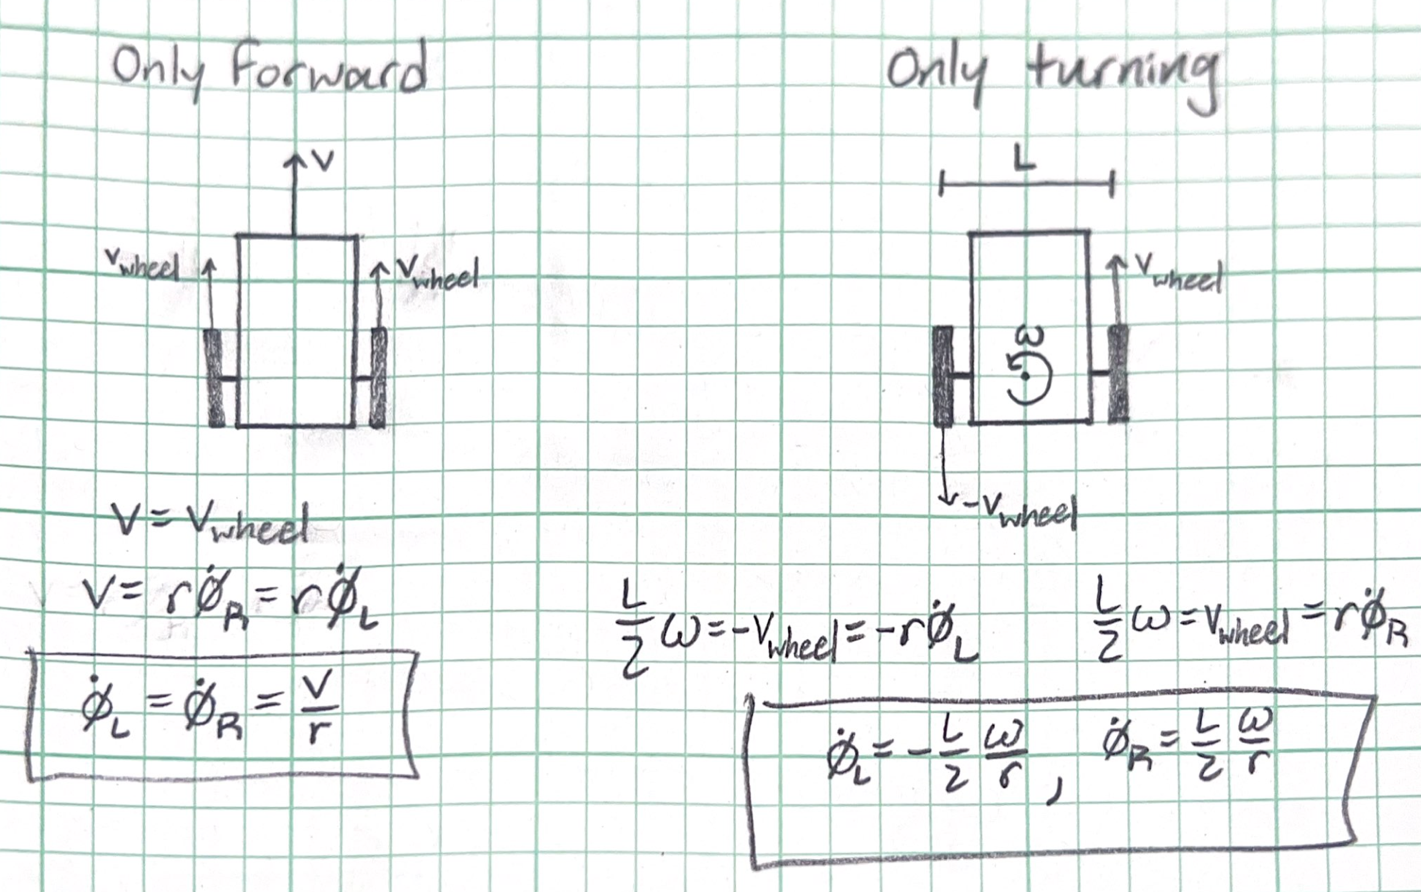 Only forward
V
Vwheel
Vwheel
V = Vwheel
V = rφ̇_R = rφ̇_L
φ̇_L = φ̇_R = V/r
Only turning
L
Vwheel
ω
-Vwheel
L/2 ω = -Vwheel = -rφ̇_L
L/2 ω = Vwheel = rφ̇_R
φ̇_L = -L/2 ω/r , φ̇_R = L/2 ω/r